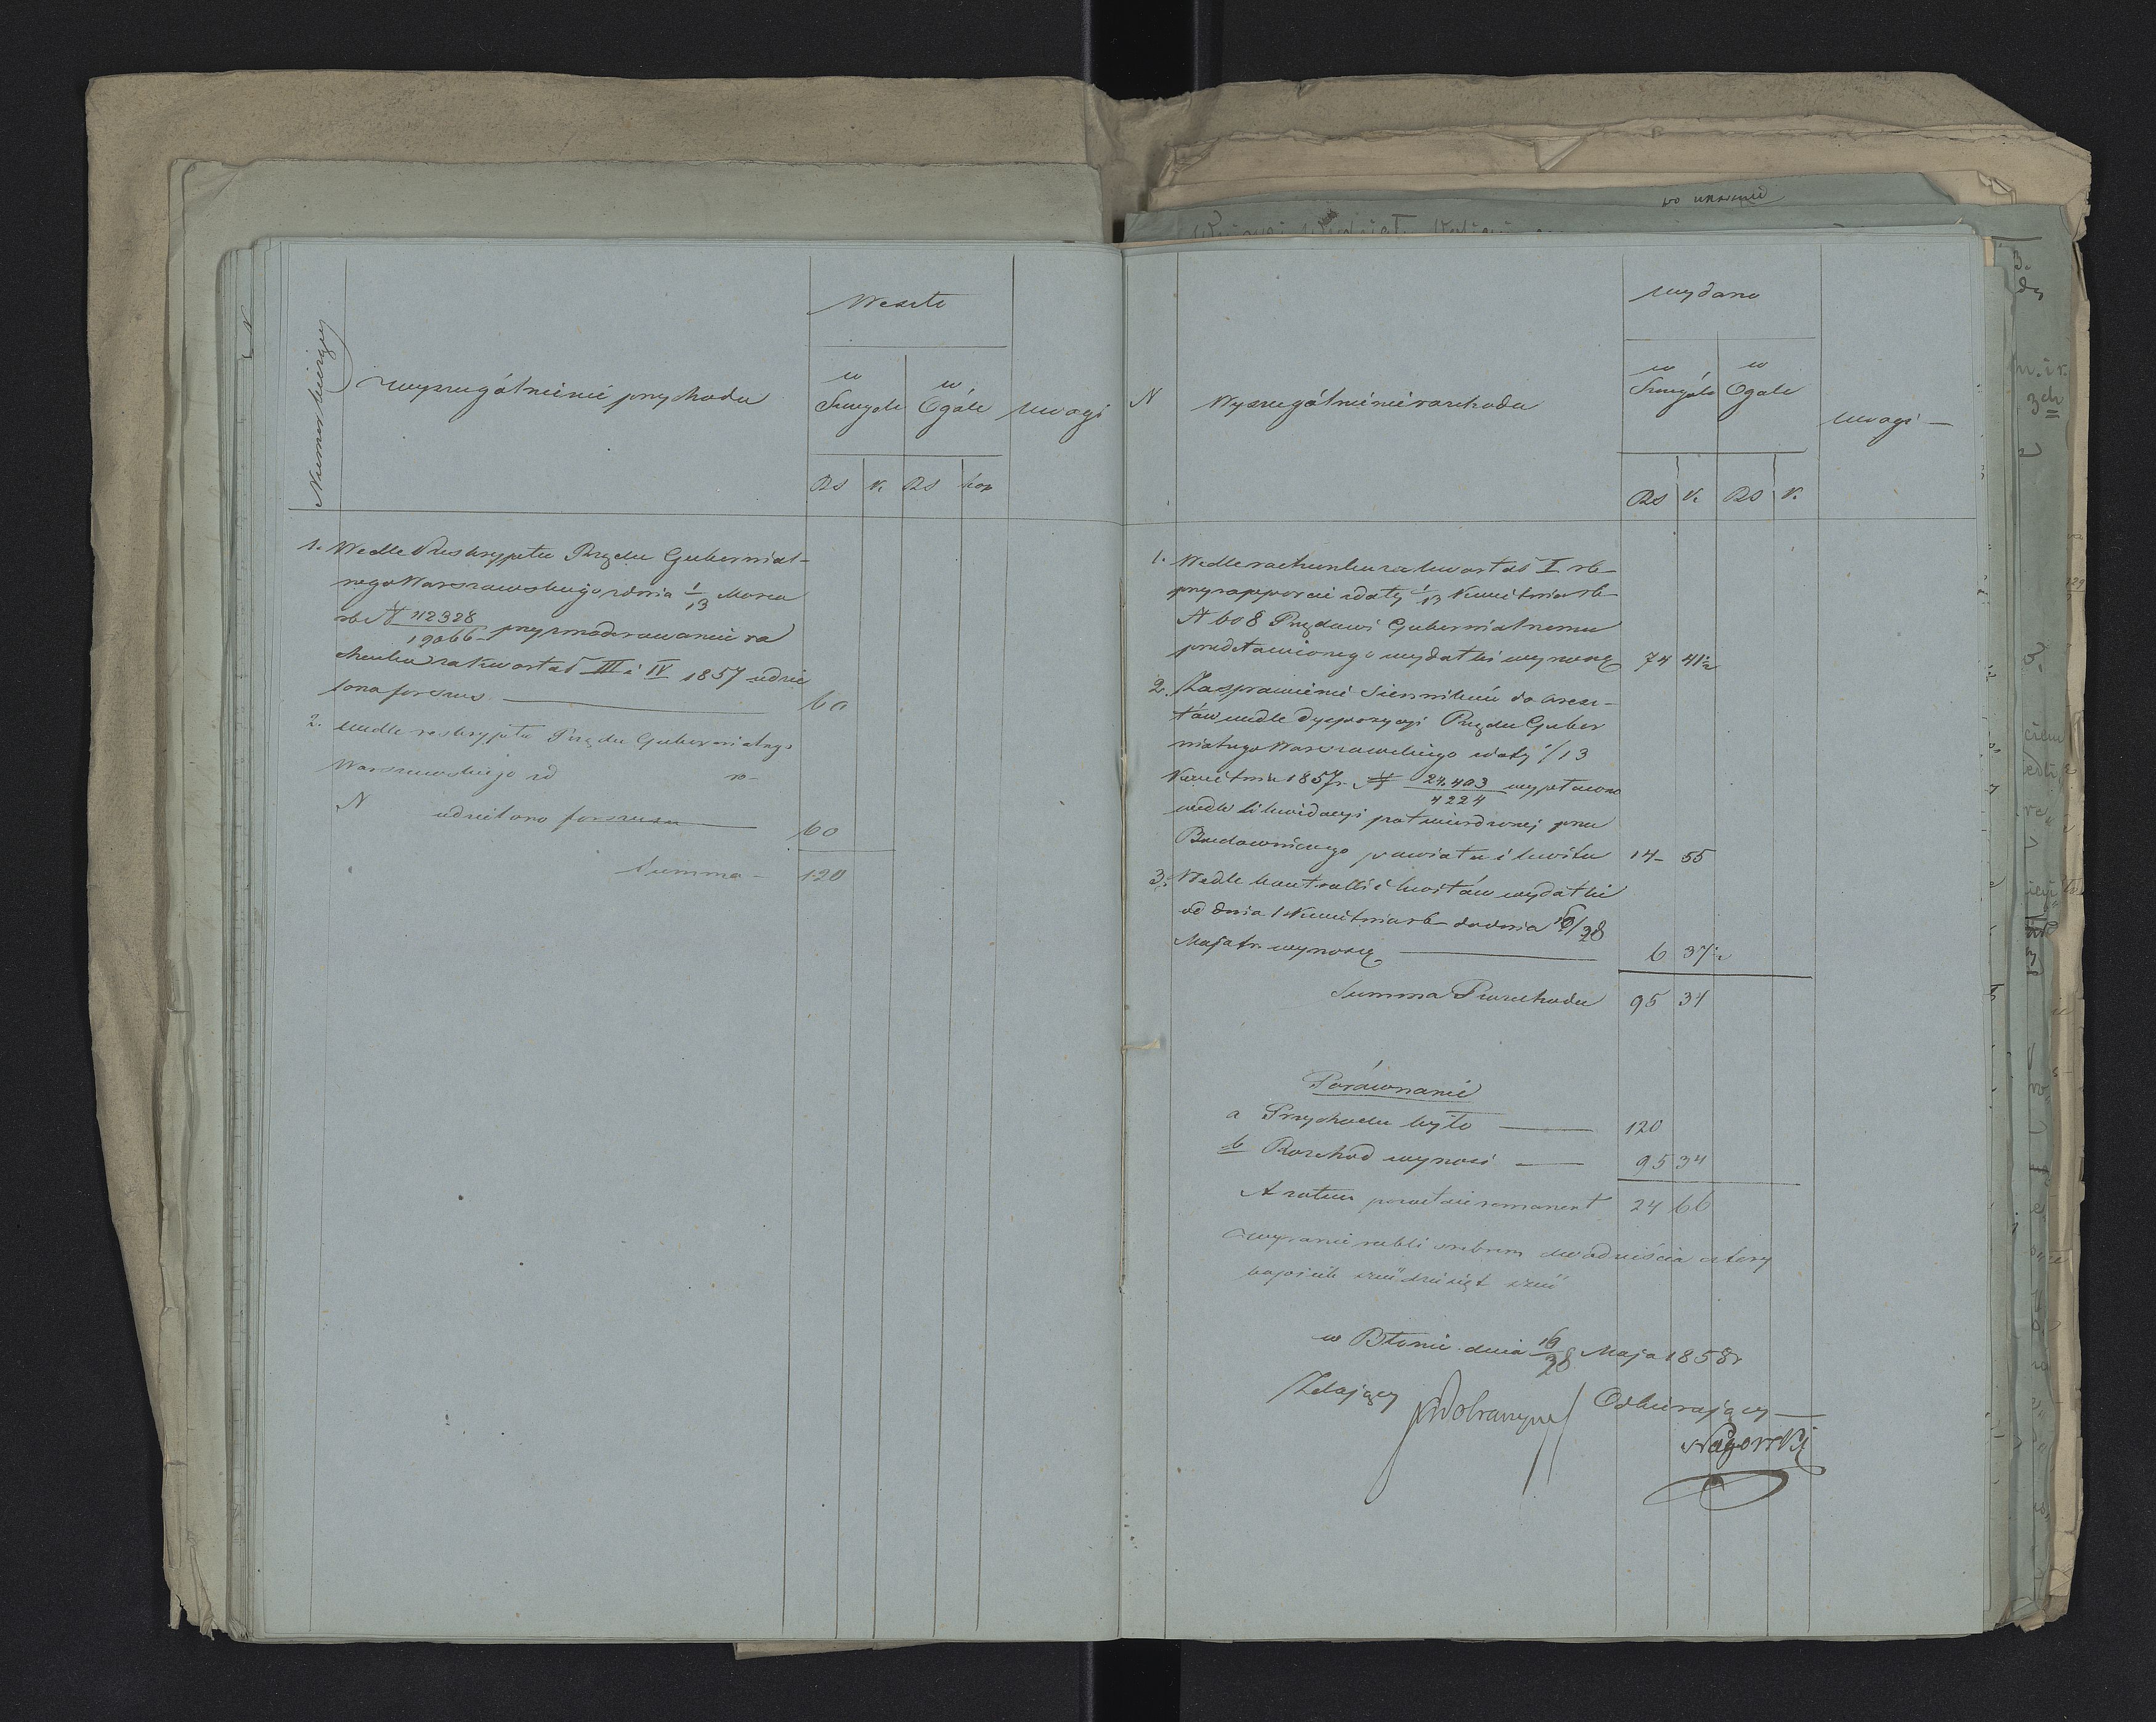 Numer bieżący
wyszczególnienie przychodu
Weszło
w Szczególe
w Ogóle
uwagi
Rs k. Rs kop
1. Wedle Reskryptu Rządu Gubernial-
nego Warszawskiego z dnia 1/13 Marca
rb N 42328/19066 przy moderowaniu ra
chunku za kwartał III i IV 1857 udzie
lona forszus — 60
2. wedle reskryptu Rządu Gubernialnego
Warszawskiego z d ro-
N udzielono forszusu — 60
Summa - 120
N
Wyszczególnienie rozchodu
wydano
w Szczególe
w Ogóle
uwagi —
Rs k. Rs k.
1. Wedle rachunku za kwartał I rb
przy rapporcie z daty 1/13 Kwietnia rb
N 608 Rządowi Gubernialnemu
przedstawionego wydatki wynoszą 74 41½
2. Za sprawienie Sienników do aresz-
tów wedle dyspozycyi Rządu Guber
nialnego Warszawskiego z daty 1/13
Kwietnia 1857 r. N 24.403/4224 wypłacono
wedle likwidacyi potwierdzonej przez
Budowniczego powiatu i kwitu 14- 55
3. Wedle kontrolli i kwitów wydatki
od dnia 1 Kwietnia rb do dnia 16/28
Maja tr. wynoszą — 6 37½
Summa Rozchodu 95 34
Porównanie
a Przychodu było — 120
b Rozchód wynosi — 95 34
A zatem pozostaje remanent 24 66
wyraźnie rubli srebrem dwadzieścia cztery
kopiejek sześćdziesiąt sześć
w Błoniu dnia 16/28 Maja 1858 r
Zdający
Odbierający —
Nagorski